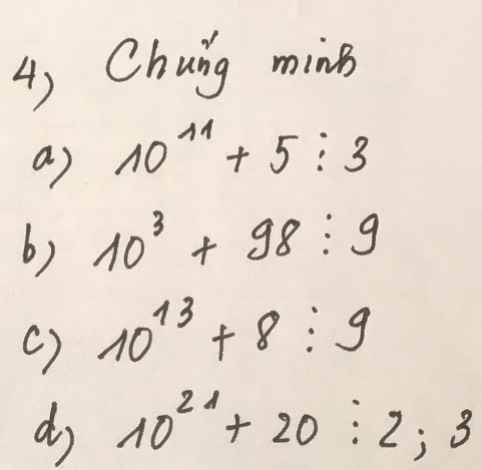 4) Chứng minh
a) 10¹¹ + 5 ⋮ 3
b) 10³ + 98 ⋮ 9
c) 10¹³ + 8 ⋮ 9
d) 10²¹ + 20 ⋮ 2 ; 3